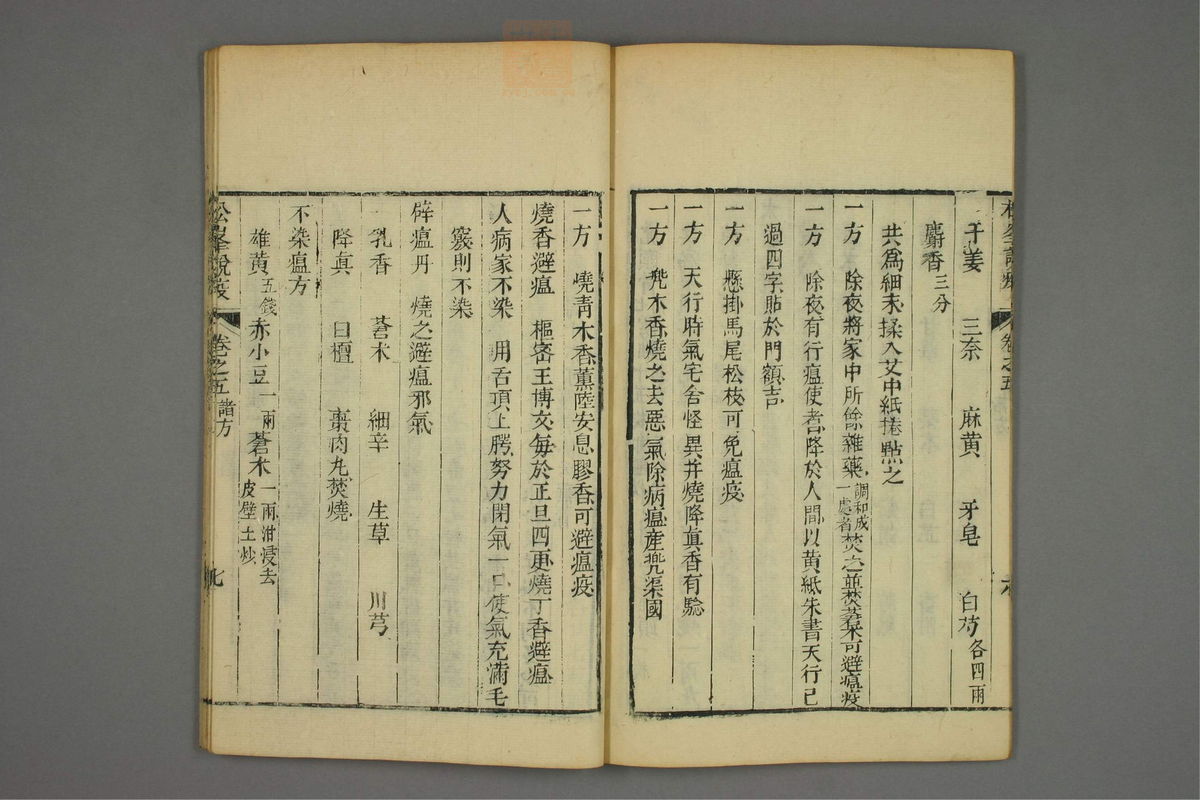 干姜　三奈　麻黄　牙皂　白芍各四兩
麝香三分
共爲細末揉入艾中紙捲㸃之
一方　除夜將家中所餘雜藥調和成一處者焚之並焚蒼朮可避瘟疫
一方　除夜有行瘟使者降於人間以黄紙朱書天行已
過四字貼於門額吉
一方　懸掛馬尾松枝可免瘟疫
一方　天行時氣宅舍怪異并燒降真香有騐
一方　兠木香燒之去惡氣除病瘟產兠渠國
卷之五
六
一方　燒青木香薰陸安息膠香可避瘟疫
燒香避瘟　樞密王博文每於正旦四更燒丁香避瘟
人病家不染　用舌頂上腭努力閉氣一口使氣充滿毛
竅則不染
辟瘟丹　燒之避瘟邪氣
乳香　蒼朮　細辛　生草　川芎
降真　白檀　棗肉丸焚燒
不染瘟方
雄黄五錢赤小豆一兩蒼朮一兩泔浸去皮壁土炒
松峯說疫　卷之五　諸方　七